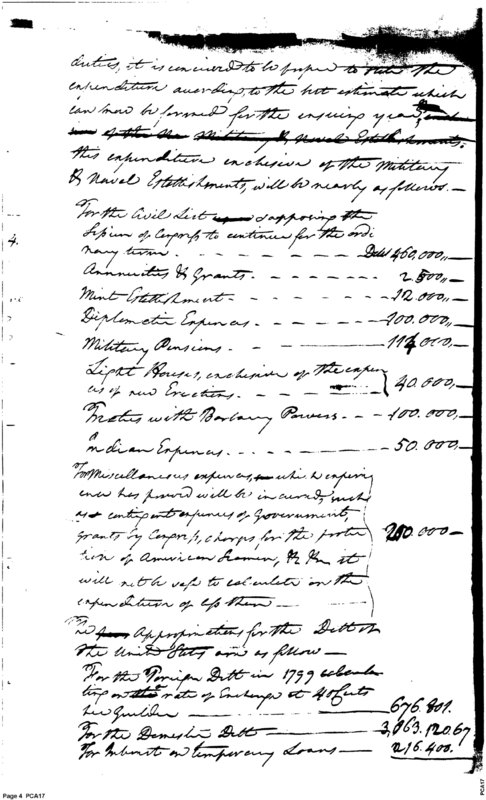 duties, it is conceived to be proper to state the
expenditure according to the best estimate which
can now be formed for the ensuing year,
of the Military & Naval Establishments,
this expenditure inclusive of the Military
& Naval Establishments, will be nearly as follows. —
For the Civil List supposing the
Session of Congress to continue for the ordi
nary term - - - - - - - - Dolls 460,000,,—
4.
Annuities & Grants. - - - - - - - 2.500,,—
Mint Establishment - - - - - - - 12.000,,—
Diplomatic Expences - - - - - - - 100.000,—
Military Pensions. - - - - - - - 114,000,—
Light Houses, inclusive of the expen
ces of new Erections. - - - } 40.000,—
Treaties with Barbary Powers. - - - 100.000,—
Indian Expences. - - - - - - - 50.000,—
For Miscellaneous expences, which experi
ence has proved will be incurred, such
as contingent expences of Government,
grants by Congress, charges for the protec
tion of American Seamen, &c &c it
will not be safe to calculate on the
expenditure of less than —
200.000—
The Appropriations for the Debt of
the United States are as follow—
For the Foreign Debt in 1799 calcula
ting on the rate of Exchange at 40 Cents
per Guilder — 676.801.
For the Domestic Debt — 3,063.120.67
For Interest on temporary Loans — 216.400.
Page 4 PCA17
PCA17